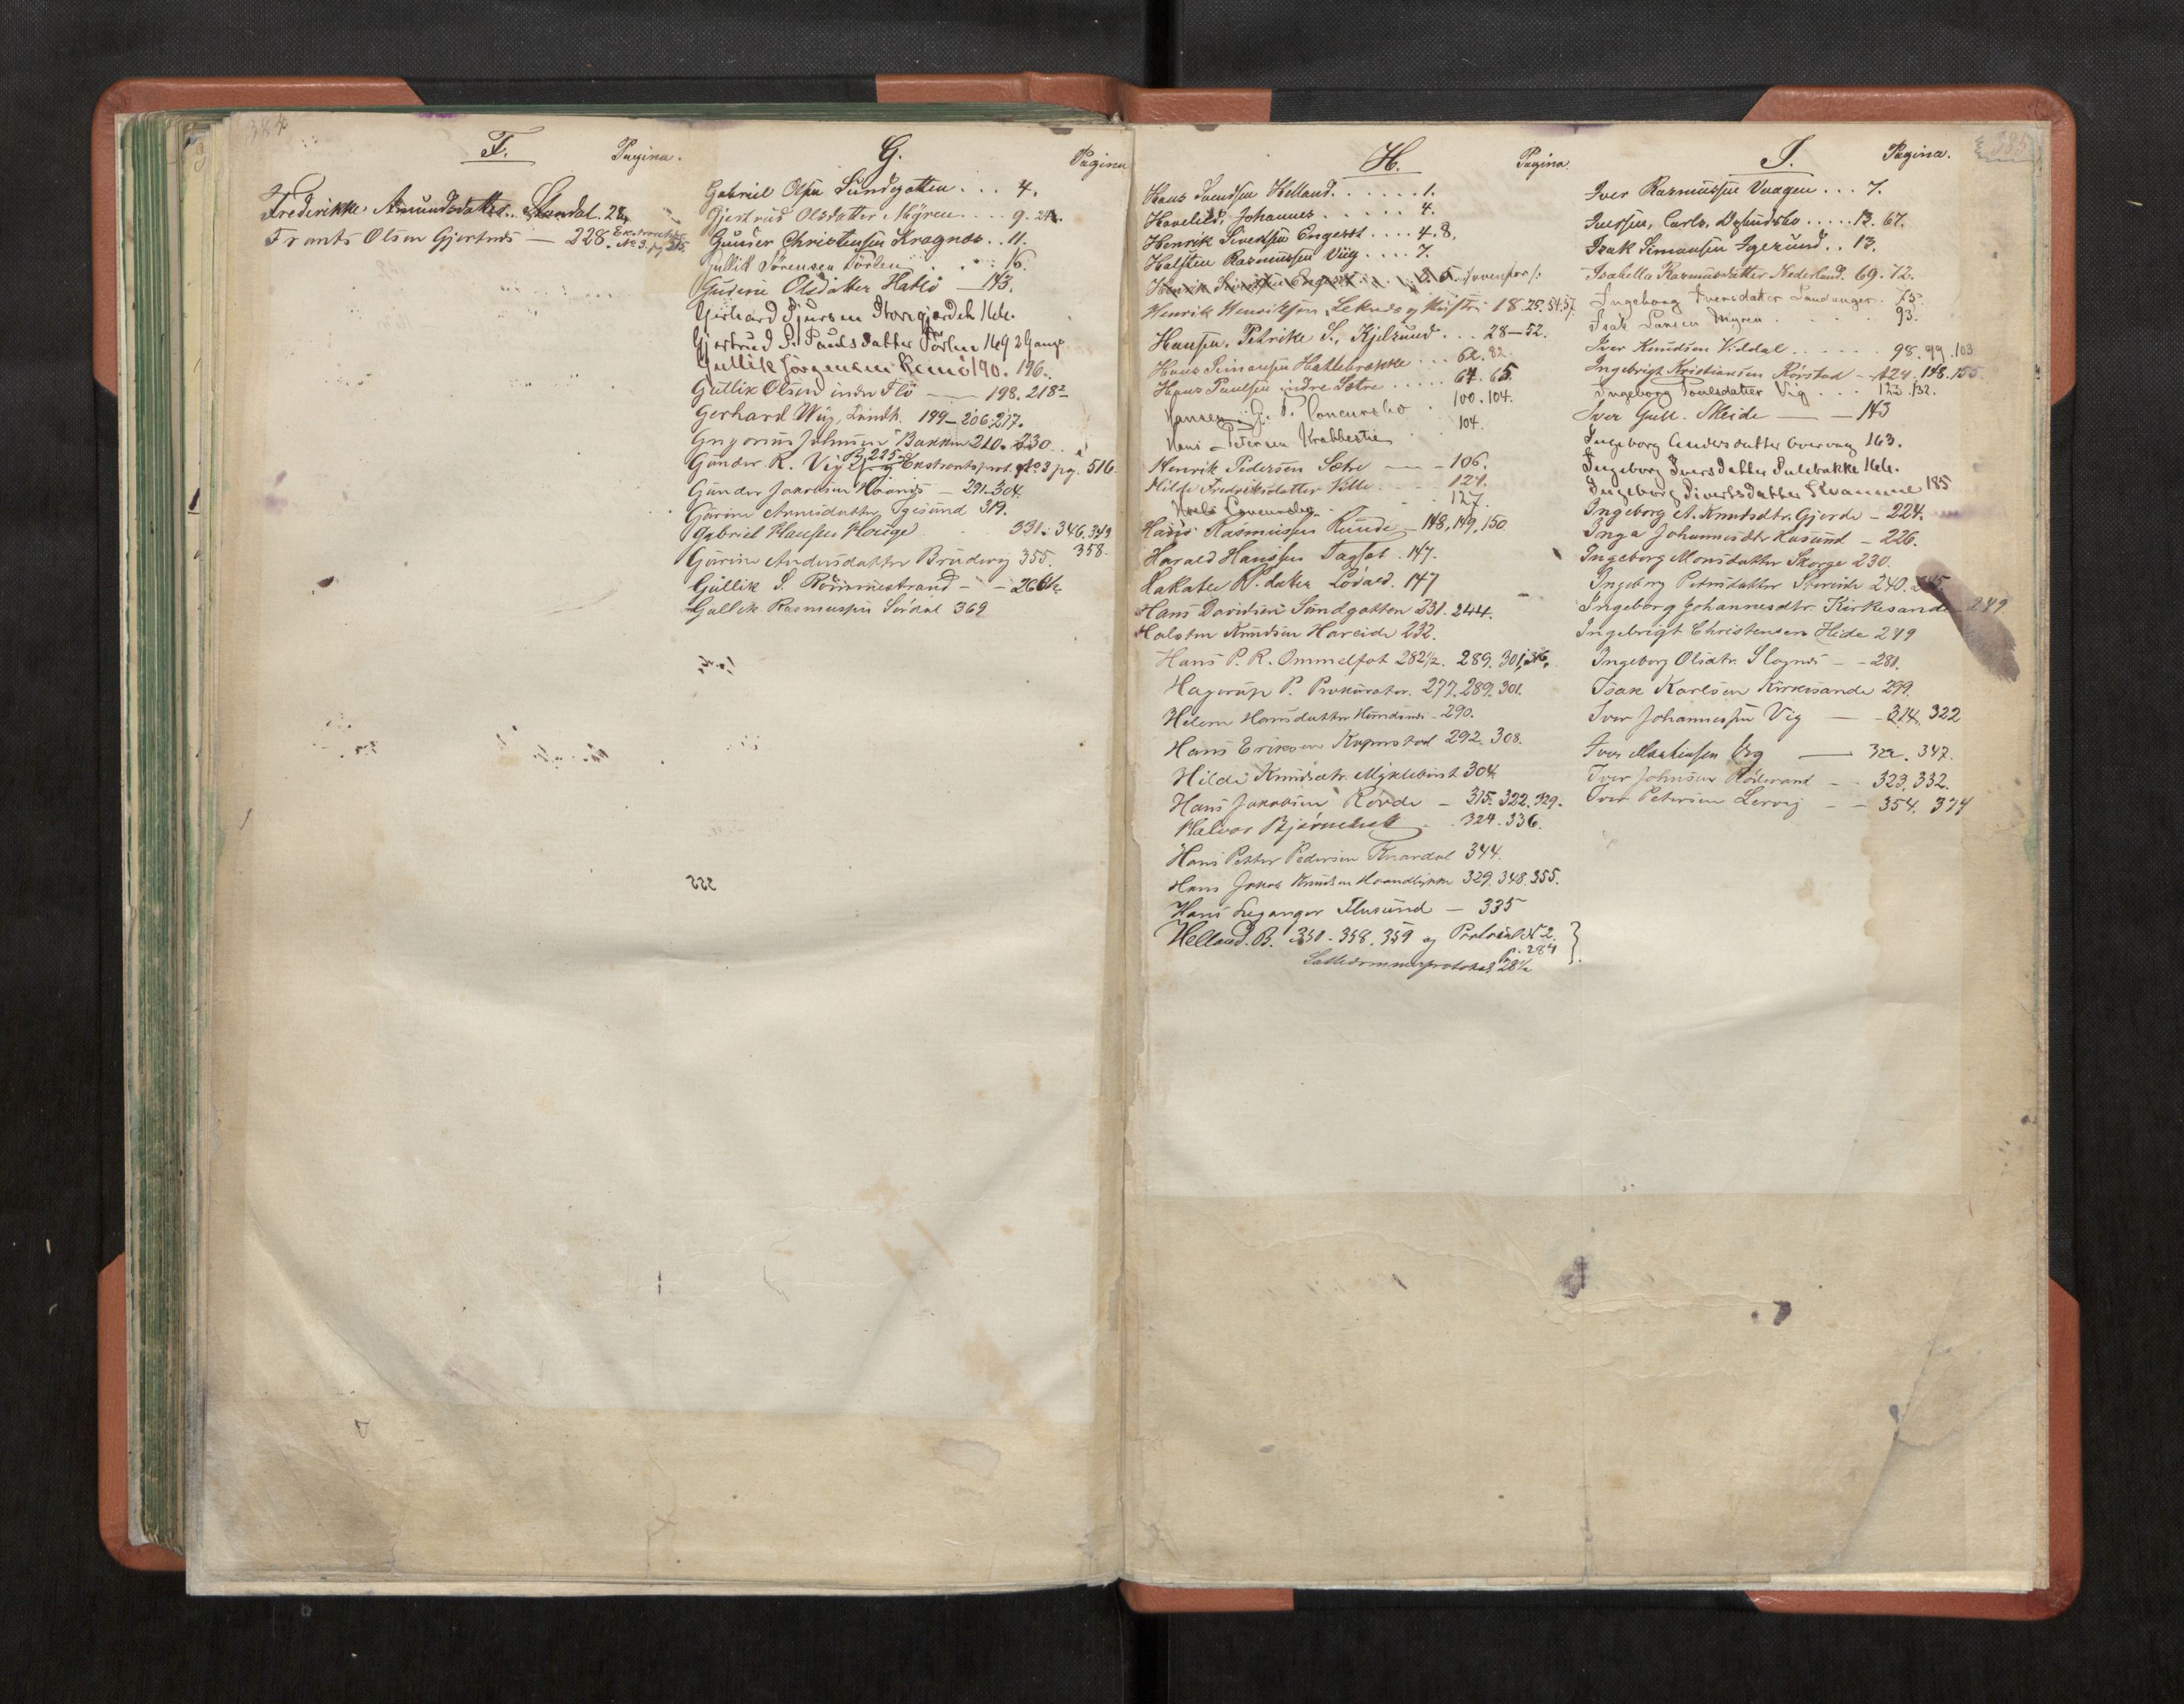 384
F. Pagina.
Frederikke Amundsdatter Standal. 28
Frants Olsen Gjertnes — 228. Ekstraretspr. No 3. pg 315.
G. Pagina
Gabriel Olsen Sundgotten . . . 4.
Gjertrud Olsdatter Myren . . . . 9. 24.
Gunner Christensen Kragnes . . 11.
Gullik Sørensen Törlen . . . 16.
Guderin Olsdatter Hatlö — 143.
Gerhard Sjursen Storegjerdet 166.
Gjertrud P. Paulsdatter Törlen 169 2 Gange
Gullik Jörgensen Remö 190. 196.
Gullik Olsen indre Flö — 198. 218²
Gerhard Wiig, Landh. 199 – 206. 217.
Gregorius Johnsen Bakken 210. 230.
Gunder R. Vig Pg 225 og Ekstraretsprot. No 3 pg. 516
Gunder Jakobsen — 291. 304.
Gurine Arnesdatter Igesund 319.
Gabriel Klausen Houge 331. 346. 349
358.
Gurine Andersdatter Brudevig 355.
Gullik S. Römmestrand — 266½
Gullik Rasmussen 369
H. Pagina
Hans Svendsen Helland . . . . . . 1.
Havelid, Johannes . . . . . . 4.
Henrik Sivertsen Engeset . . . . 4. 8.
Halsten Rasmussen Viig . . . . 7.
Henrik Sivertsen Engeset . . . . 8. /: ovenfor :/
Henrik Henriksen Leknes og Hustru 18. 25. 54. 57.
Hansen, Petrike S., Kjelsund . . . 28 – 52.
Hans Simonsen Hattebrække . . . 62. 82.
Hans Paulsen indre Sætre . . . . . 64. 65.
Hansen G. P. Concursbo . 100. 104.
Hans Petersen Krabbestig . . 104.
Henrik Pedersen Sætre — 106.
Hilde Fredriksdatter — 121.
Concursbo . . 127.
Hans Rasmussen Runde — 148, 149, 150
Harald Hanssen 147.
147
Hans Davidsen Sundgotten 231. 244.
Halsten Knudsen Hareide 232.
Hans P. R. Ommelfot 282½. 289. 301, 316,
Hagerup P. Prokurator. 277. 289. 301.
Helene Hansdatter — 290.
Hans Eriksen 292. 308.
Hilde Knudsdtr. Myklebust 304
Hans Jakobsen Rovde — 315. 322. 329.
Halvor . 324. 336.
Hans Petter Pedersen 344.
Hans Jakob Knudsen 329. 348. 355.
Hans Leganger — 335
Helland. B. 351. 358. 359 og Protocol No 2. p. 284
28½
I. Pagina. 385
Iver Rasmussen Vaagen . . . 7.
Iversen, Carls, Dødsbo . . . . . 13. 67.
Isak Simonsen Igesund . . 13.
Isabella Rasmusdatter Nederland. 69. 72.
Ingeborg Iversdatter Landanger . 75.
Isak Larsen Myren . . . . 93.
Iver Knudsen Viddal . . . . . 98. 99. 103
Ingebrigt Kristiansen Rörstad — 124. 148. 155
Ingeborg Poulsdatter Vig . . . 123. 132.
Iver Gull. Skeide — 143
Ingeborg Andersdatter Overvaag 163.
Ingeborg Iversdatter 166.
Ingeborg Sivertsdatter Kvamme 185
Ingeborg A. Knutsdtr. Gjerde — 224.
Inga Johannesdtr Kusund — 226.
Ingeborg Monsdatter Skorge 230.
Ingeborg Pedersdatter 240. 245
Ingeborg Johannesdtr. Kirkesande — 249
Ingebrigt Christensen Hide 249
Ingeborg Olsdtr. — 281.
Isak Karlsen Kirkesande 299.
Iver Johannessen Vig — 314. 322
Iver — 322. 347.
Iver Johnsen — 323. 332.
Iver Petersen Lervig — 354. 374